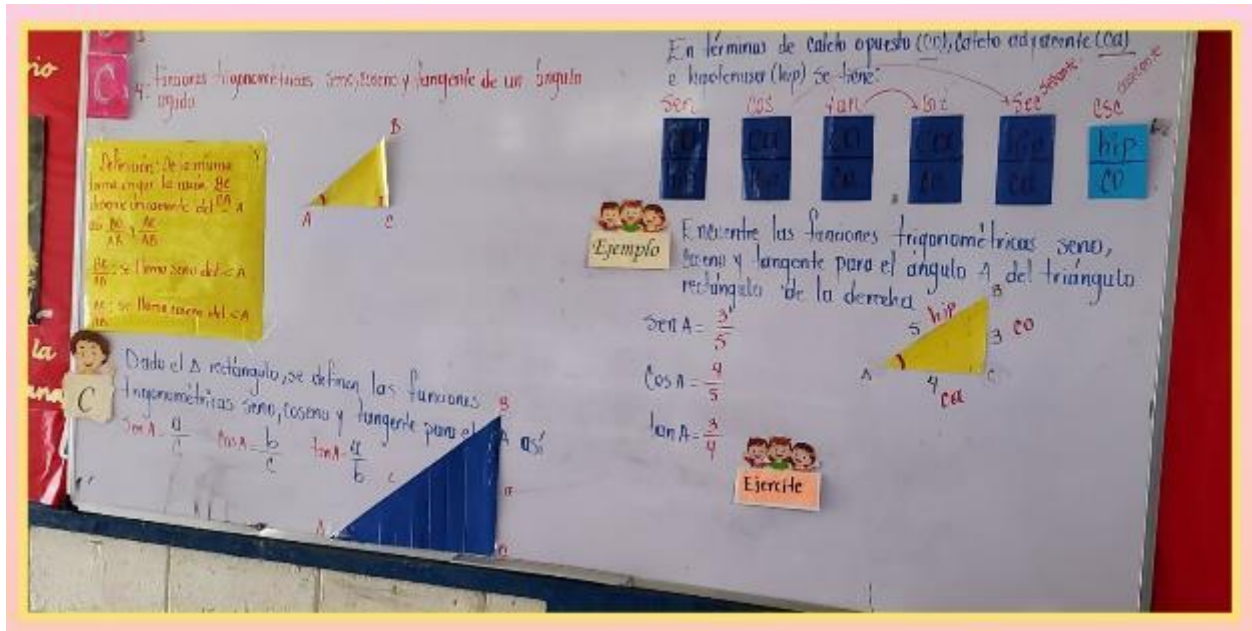 rio
la
C
4: Funciones trigonométricas seno, coseno y tangente de un ángulo
agudo
Definición: De la misma
forma en que la razón BC
AB
depende únicamente del < A
BC
AB
AC
AB
BC
AB : se llama seno del < A
AC
AB : se llama coseno del < A
B
A
C
C
Dado el Δ rectángulo, se definen las funciones
trigonométricas seno, coseno y tangente para el A así
Sen A = a
c
Cos A = b
c
tan A = a
b
B
c
A
En términos de cateto opuesto (CO), cateto adyacente (Ca)
e hipotenusa (hip) se tiene:
Sen
Cos
tan
Sec
csc
secante
cosecante
co
ca
co
ca
hip
hip
hip
ca
co
ca
CO
Ejemplo
Encuentre las funciones trigonométricas seno,
coseno y tangente para el ángulo A del triángulo
rectángulo de la derecha
Sen A = 3
5
Cos A = 4
5
tan A = 3
4
B
5
hip
3
CO
A
C
4
ca
Ejercite